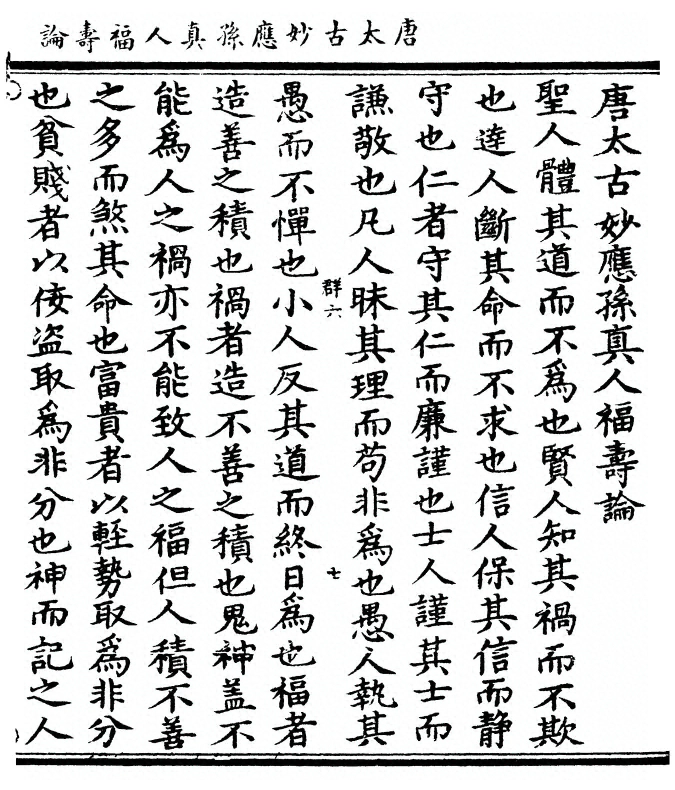 唐太古妙應孫真人福壽論
唐太古妙應孫真人福壽論
聖人體其道而不爲也賢人知其禍而不欺
也達人斷其命而不求也信人保其信而静
守也仁者守其仁而廉謹也士人謹其士而
謙敬也凡人昧其理而苟非爲也愚人執其
群六
七
愚而不憚也小人反其道而終日爲也福者
造善之積也禍者造不善之積也鬼神盖不
能爲人之禍亦不能致人之福但人積不善
之多而煞其命也富貴者以輕勢取爲非分
也貧賤者以佞盗取爲非分也神而記之人